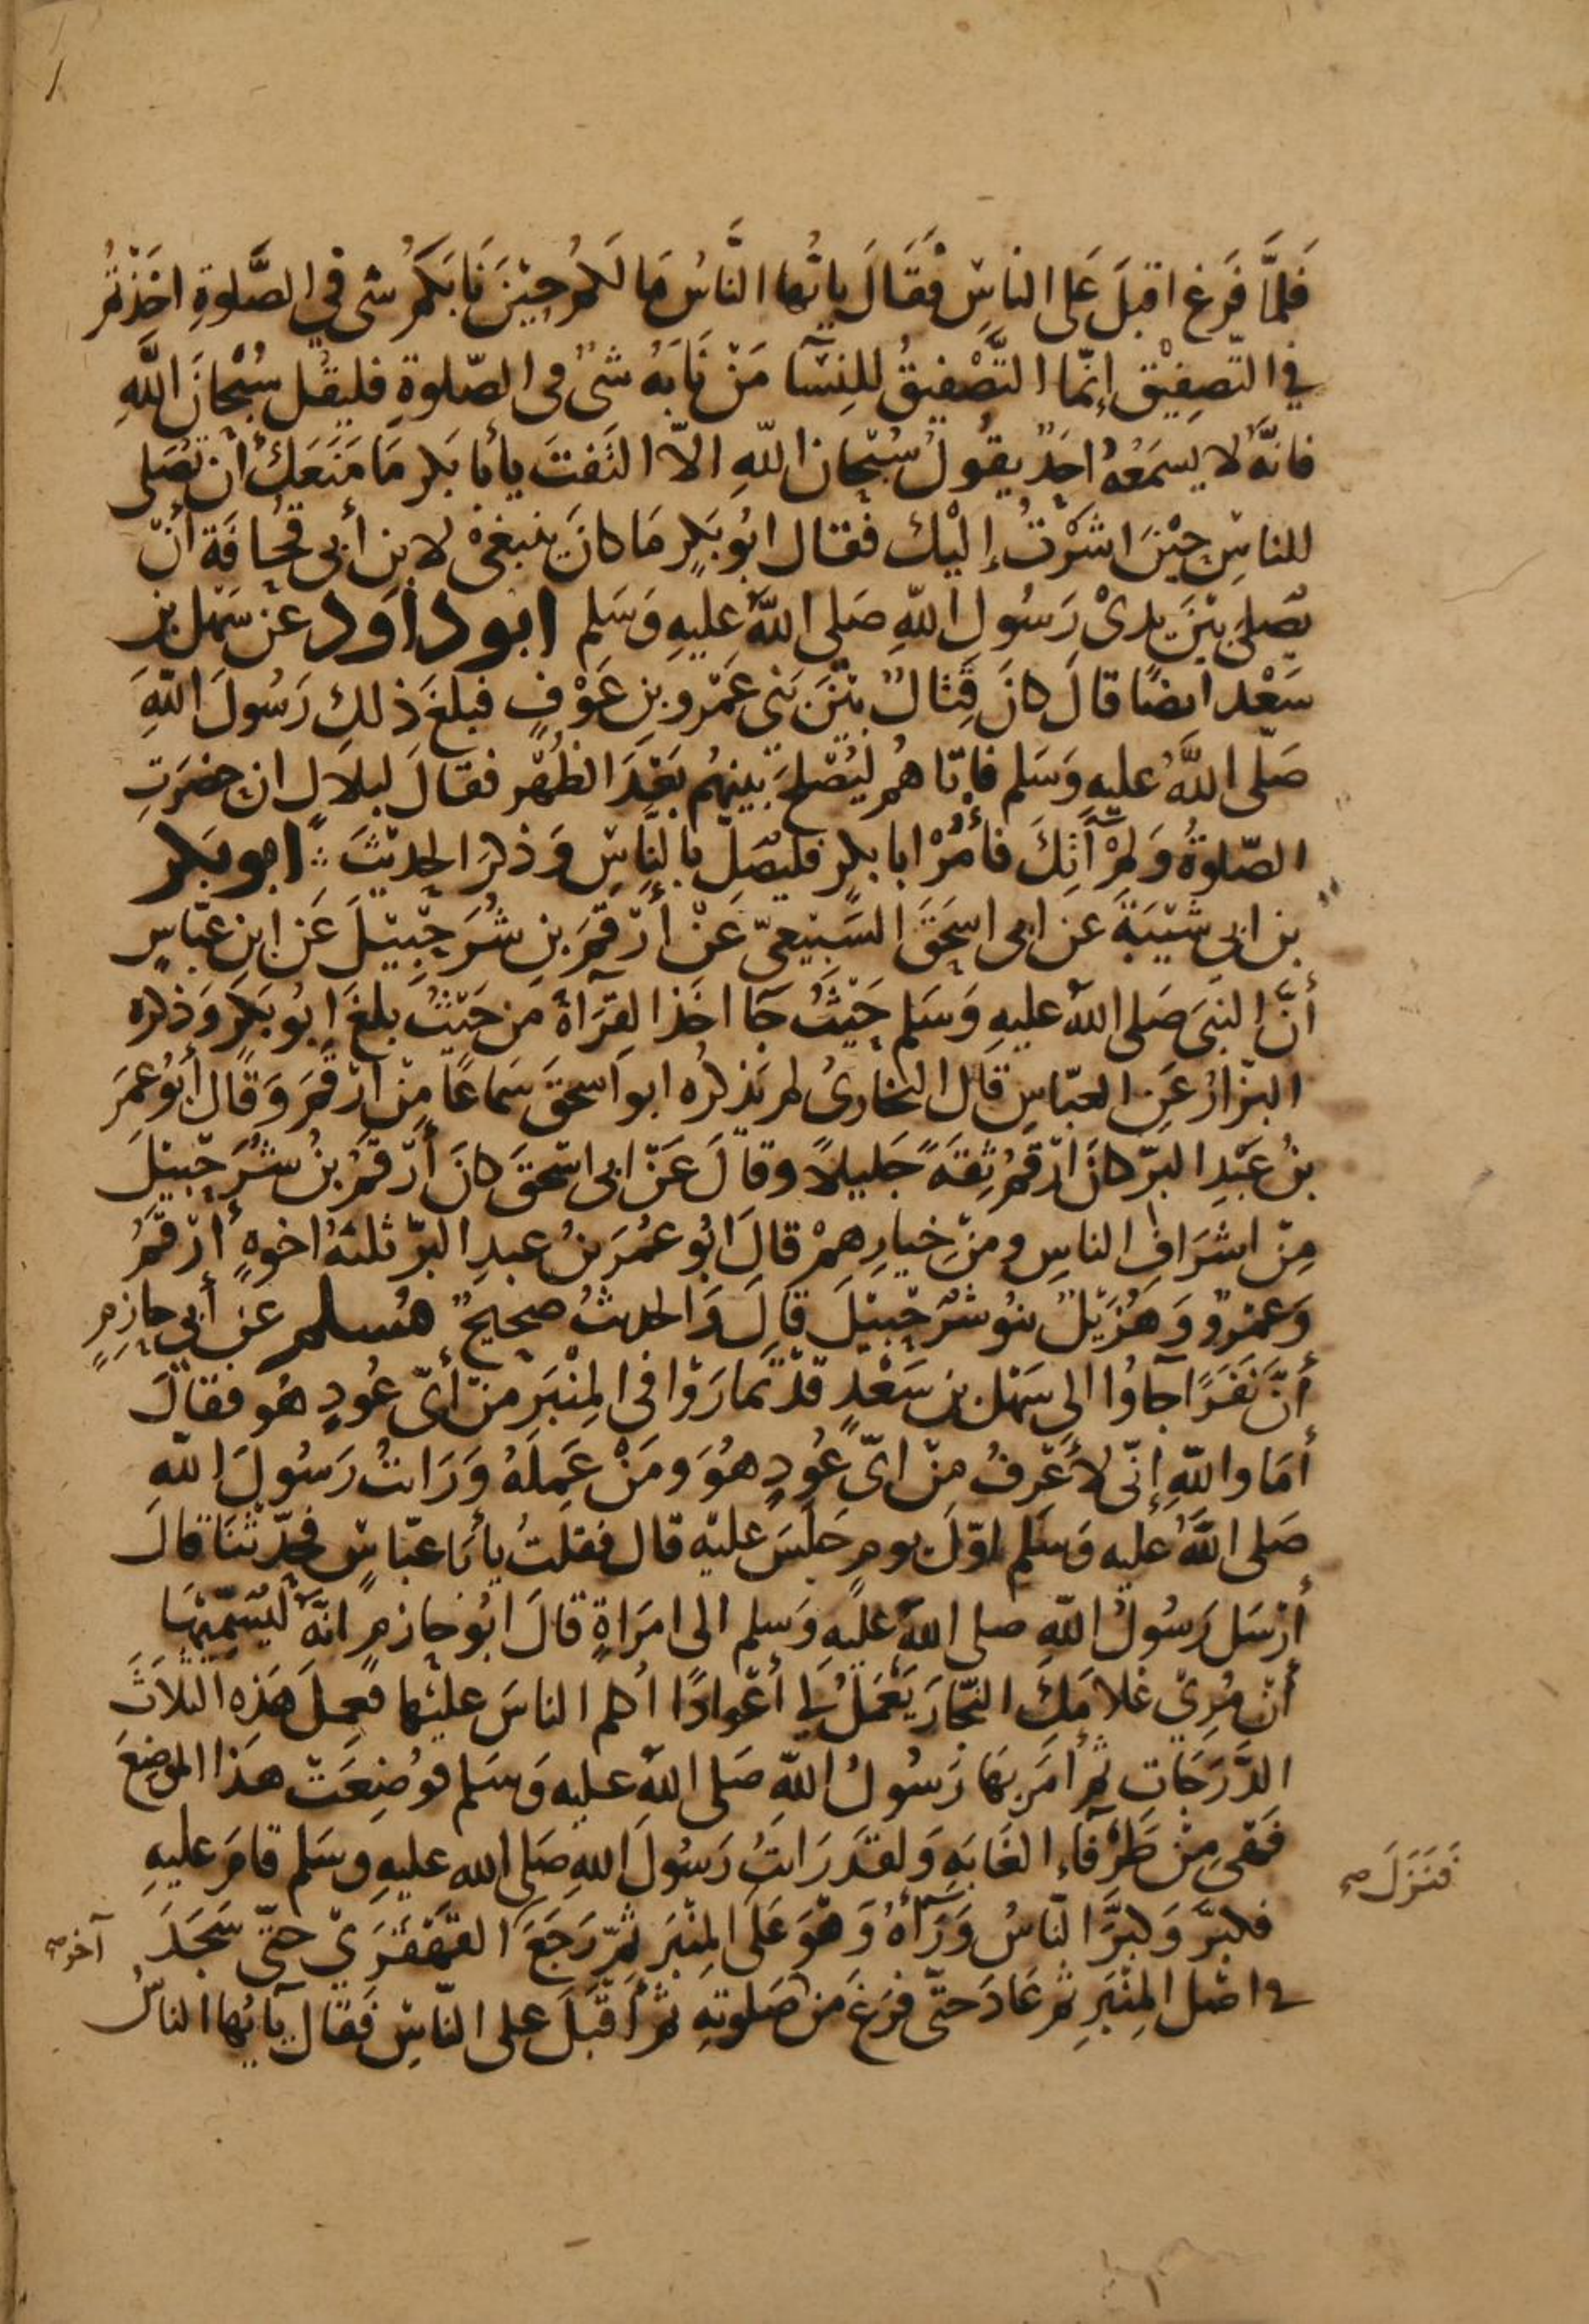 فَلمَّا فَرَغ اقبَلَ عَلى الناسِ فَقَالَ ياَيُّها النَّاسُ مَا لكمُ حِيْنَ نَابَكمُ شى في الصَّلوةِ اخَذْتمُ
في التّصفِيْق إنّما التَّصْفيقُ للنِسَآ مَنْ نَابَهُ شىٌ فى الصّلوةِ فليقُل سُبْحَانَ اللَّهِ
فانّهُ لا يسمَعُهُ احَدٌ يقُولُ سُبْحَان اللّهِ الاّ التَفتَ يأبَا بَكر مَا مَنَعَكَ أن تُصَلى
للناسِ حِيْنَ اشَرْتُ إليْك فقال ابُو بَكرٍ مَا كانَ ينبغىْ لابن أبى قُحَافَة أنْ
يُصَلىَ بيْنَ يدىْ رَسُولِ اللّهِ صَلى اللّهُ عليْهِ وَسَلم ابوداوَد عنْ سَهْل بن
سَعْد ايضًا قالَ كانَ قِتَالٌ بيْنَ بَنى عَمْرو بنِ عَوْفٍ فبلغَ ذلكِ رَسُولَ اللّهِ
صَلّى اللّهُ عليهِ وَسَلم فاتاهمُ ليُصْلِحَ بينهُم بَعْدَ الظُهْر فقالَ لبلالٍ ان حضَرَتِ
الصّلوةُ وَلمْ آتِكَ فأمُرْ ابا بكرٍ فليُصَلِّ بالنّاسِ وَذكرَ الحديْثَ ∴ ابو بكر
بن ابى شَيْبَةَ عن ابى اسحَقَ السَّبيْعىّ عَنْ أرْقمَ بنِ شُرَحْبيْلَ عَن ابنِ عبّاسٍ
أنَّ النبىَ صَلى اللّهُ عليهِ وَسَلم حَيْثُ جَا اخَذ القِرَآةَ من حَيْثُ بلغَ ابُو بَكرٍ وَذكره
البزّارُ عَنِ العبّاسِ قال البخارىُ لم يَذكرُه ابو اسحَقَ سَماعًا مِنْ ارْقمَ وَقال أبُو عمَر
بنُ عَبْدِ البَرّ كانَ ارْقمُ ثِقَةً جَليلاً وقالَ عَنْ ابى اسْحقَ كانَ أرْقمُ بنُ شُرَحْبيْلَ
مِنْ اشرَافِ الناسِ ومنْ خيارِهمْ قالَ ابُو عُمَرَ بنُ عبدِ البرّ ثلثةُ اخوةٍ أرْقمُ
وَعمْرٌو وَهُزَيْلٌ بنُو شُرَحْبيْلَ قالَ وَالحديثُ صَحيحٌ مُسلم عَن أبي حازمٍ
أنَّ نَفَرًا جآوُا الى سَهْل بن سَعْدٍ قدْ تَمارَوْا فى المِنْبَر منْ أىّ عُودٍ هُو فقالَ
أمَا واللّهِ إنّى لأَعْرفُ مِنْ اىّ عُودٍ هوَُ ومَنْ عَمِلَهُ وَرَايتُ رَسُولَ اللّهِ
صَلى اللّهُ عليه وَسَلم اوّلَ يومٍ جَلسَ عليْه قال فقلتُ يأبَا عبّاسٍ فحدّثْنَا قالَ
أرْسَل رَسُولُ اللّهِ صلى اللّهُ عليهِ وَسلم الى امرَاةٍ قالَ ابُو حازمٍ انّهُ ليُسَمّيْهَا
أنْ مُرِىْ غلامَكِ النّجّارَ يَعْمَلْ لي أعْوادًا اكلم الناسَ عليْها فعَمِلَ هَذه الثلاثَ
الدَّرَجَاتِ ثمّ أمَرَ بهَا رَسُولُ اللّهِ صَلى اللّهُ عليه وَسَلم فوُضِعَتْ هذا الموضِعَ
فَهْىَ مِنْ طَرْفَآءِ الغَابَةِ وَلقدْ رَايتُ رَسُولَ اللّهِ صَلى الله عليهِ وسَلم قامَ عليهِ
فكبّرَ وَكبّرَ النّاسُ وَرَآهُ وَهْوَ عَلى المِنْبَر ثمّ رَجَعَ القَهْقَرَىْ حتّى سَجَدَ
فَنَزَلَ صح
آخر صح
في اصْل المِنْبَرِ ثمّ عَادَ حتّى فرَغ من صَلوتهِ ثمّ أقبَلَ على النّاسِ فَقال يآ يُها الناسُ